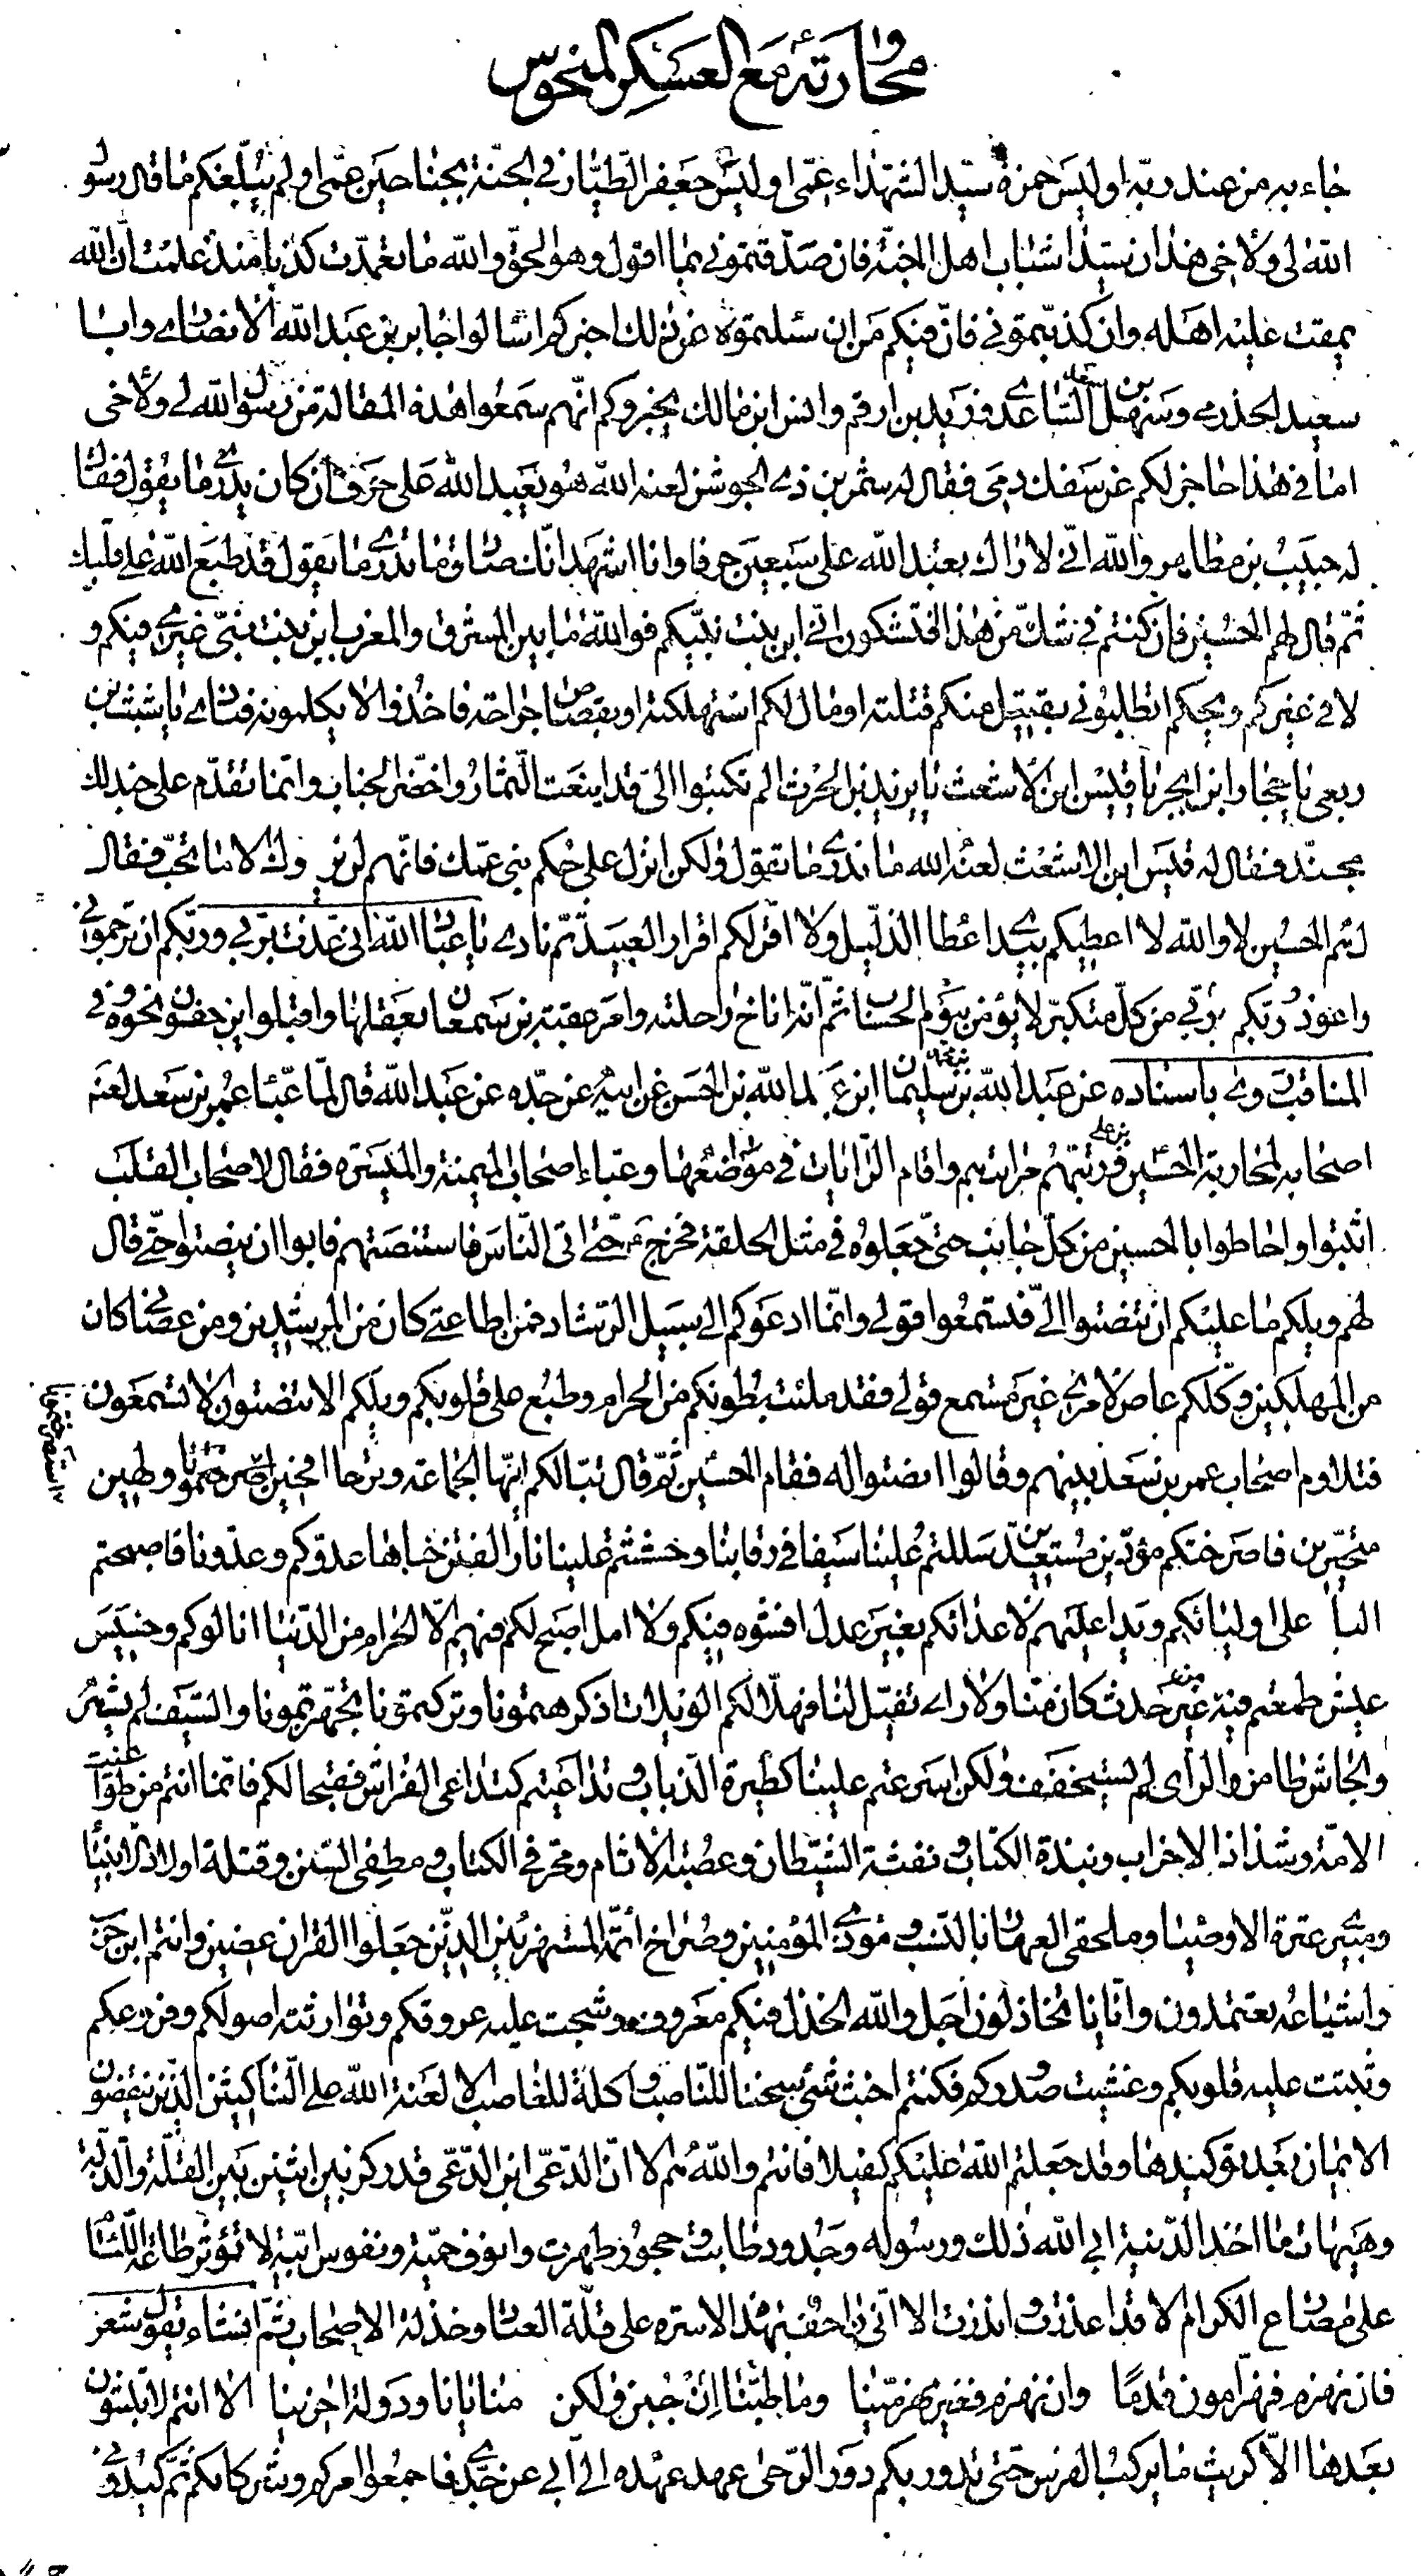 محاورته مع العسكر المنحوس
جاء به من عند ربه اوليس حمزة سيد الشهداء عمى اوليس جعفر الطيار فى الجنة بجناحين عمى اولم يبلغكم ما قال رسول
الله لى ولاخى هذان سيدا شباب اهل الجنة فان صدقتمونى بما اقول وهو الحق والله ما تعمدت كذبا منذ علمت ان الله
يمقت عليه اهله وان كذبتمونى فان فيكم من ان سئلتموه عن ذلك اخبركم اسالوا جابر بن عبد الله الانصارى وابا
سعيد الخدرى وسهل بن سعد الساعدى وزيد بن ارقم وانس ابن مالك يخبروكم انهم سمعوا هذه المقالة من رسول الله لى ولاخى
اما فى هذا حاجز لكم عن سفك دمى فقال له شمر بن ذى الجوشن لعنه الله هو يعبد الله على حرف ان كان يدرى ما يقول فقال
له حبيب بن مظاهر والله انى لاراك تعبد الله على سبعين حرفا وانا اشهد انك صادق ما تدرى ما يقول قد طبع الله على قلبك
ثم قال لهم الحسين فان كنتم فى شك من هذا افتشكون انى ابن بنت نبيكم فوالله ما بين المشرق والمغرب ابن بنت نبى غيرى فيكم و
لا فى غيركم ويحكم اتطلبونى بقتيل منكم قتلته او مال لكم استهلكته او بقصاص جراحة فاخذوا لا يكلمونه فنادى يا شبث بن
ربعى يا حجار ابن ابجر يا قيس ابن الاشعث يا يزيد بن الحرث الم تكتبوا الى قد اينعت الثمار واخضر الجناب وانما تقدم على جند لك
مجند فقال له قيس ابن الاشعث لعنه الله ما ندرى ما تقول ولكن انزل على حكم بنى عمك فانهم لن يروك الا ما تحب فقال
لهم الحسين لا والله لا اعطيكم بيدى اعطاء الذليل ولا اقر لكم اقرار العبيد ثم نادى يا عباد الله انى عذت بربى وربكم ان ترجمونى
واعوذ بربى وربكم من كل متكبر لا يؤمن بيوم الحساب ثم انه اناخ راحلته وامر عقبة بن سمعان بعقلها واقبلوا يزحفون نحوه وفى
المناقب روى باسناده عن عبد الله بن محمد بن سليمان ابن عبد الله بن الحسن عن ابيه عن جده عن عبد الله قال لما عبا عمر بن سعد لعنه
اصحابه لمحاربة الحسين بن على ورتبهم مراتبهم واقام الرايات فى مواضعها وعباء اصحاب الميمنة والميسرة فقال لاصحاب القلب
اثبتوا واحاطوا بالحسين من كل جانب حتى جعلوه فى مثل الحلقة فخرج حتى اتى الناس فاستنصتهم فابوا ان ينصتوا حتى قال
لهم ويلكم ما عليكم ان تنصتوا الى فتستمعوا قولى وانما ادعوكم الى سبيل الرشاد فمن اطاعنى كان من المرشدين ومن عصانى كان
من المهلكين وكلكم عاص لامرى غير مستمع قولى فقد ملئت بطونكم من الحرام وطبع على قلوبكم ويلكم الا تنصتون الا تسمعون
فتلاوم اصحاب عمر بن سعد بينهم وقالوا انصتوا له فقام الحسين ثم قال تبا لكم ايتها الجماعة وترحا افحين استصرختمونا ولهين
متحيرين فاصرختكم مؤدين مستعدين سللتم علينا سيفا فى رقابنا وحششتم علينا نار الفتن خباها عدوكم وعدونا فاصبحتم
البا على اوليائكم ويدا عليهم لاعدائكم بغير عدل افشوه فيكم ولا امل اصبح لكم فيهم الا الحرام من الدنيا انالوكم وخسيس
عيش طمعتم فيه من غير حدث كان منا ولا راى تفيل لنا فهلا لكم الويلات اذ كرهتمونا وتركتمونا تجهزتمونا والسيف لم يشهر
والجاش طامن والراى لم يستخفف ولكن اسرعتم علينا كطيرة الذباب وتداعيتم كتداعى الفراش فقبحا لكم فانما انتم من طواغيت
الامة وشذاذ الاحزاب ونبذة الكتاب ونفثة الشيطان وعصبة الاثام ومحرفى الكتاب ومطفى السنن وقتلة اولاد الانبياء
ومبيرى عترة الاوصياء وملحقى العهار بالنسب وموذى المؤمنين وصراخ ائمة المستهزئين الذين جعلوا القران عضين وانتم ابن حرب
واشياعه تعتمدون وايانا تخاذلون اجل والله الخذل فيكم معروف وشجت عليه عروقكم وتوارثته اصولكم وفروعكم
وثبتت عليه قلوبكم وغشيت صدوركم فكنتم اخبث شئ سنخا للناصب واكلة للغاصب الا لعنة الله على الناكثين الذين ينقضون
الايمان بعد توكيدها وقد جعلتم الله عليكم كفيلا فانتم والله هم الا ان الدعى ابن الدعى قد ركز بين اثنتين بين القلة والذلة
وهيهات ما اخذ الدنية ابى الله ذلك ورسوله وجدود طابت وحجور طهرت وانوف حمية ونفوس ابية لا تؤثر طاعة اللئام
على مصارع الكرام الا قد اعذرت وانذرت الا انى زاحف بهذه الاسرة على قلة العتاد وخذلة الاصحاب ثم انشاء يقول شعر
فان نهزم فهزامون قدما وان نهزم فغير مهزمينا وما طبنا ان جبن ولكن منايانا ودولة اخرينا الا انتم لا تلبثون
بعدها الا كريث ما يركب الفرس حتى تدور بكم دور الرحى عهد عهده الى ابى عن جدى فاجمعوا امركم وشركائكم ثم كيدونى